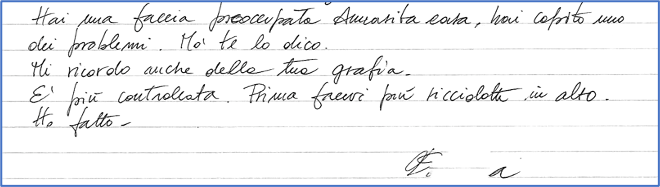 Hai una faccia preoccupata Annarita cara, hai capito uno
dei problemi. Mo' te lo dico.
Mi ricordo anche della tua grafia.
E' più controllata. Prima facevi più ricciolotti in alto.
Ho fatto -
a